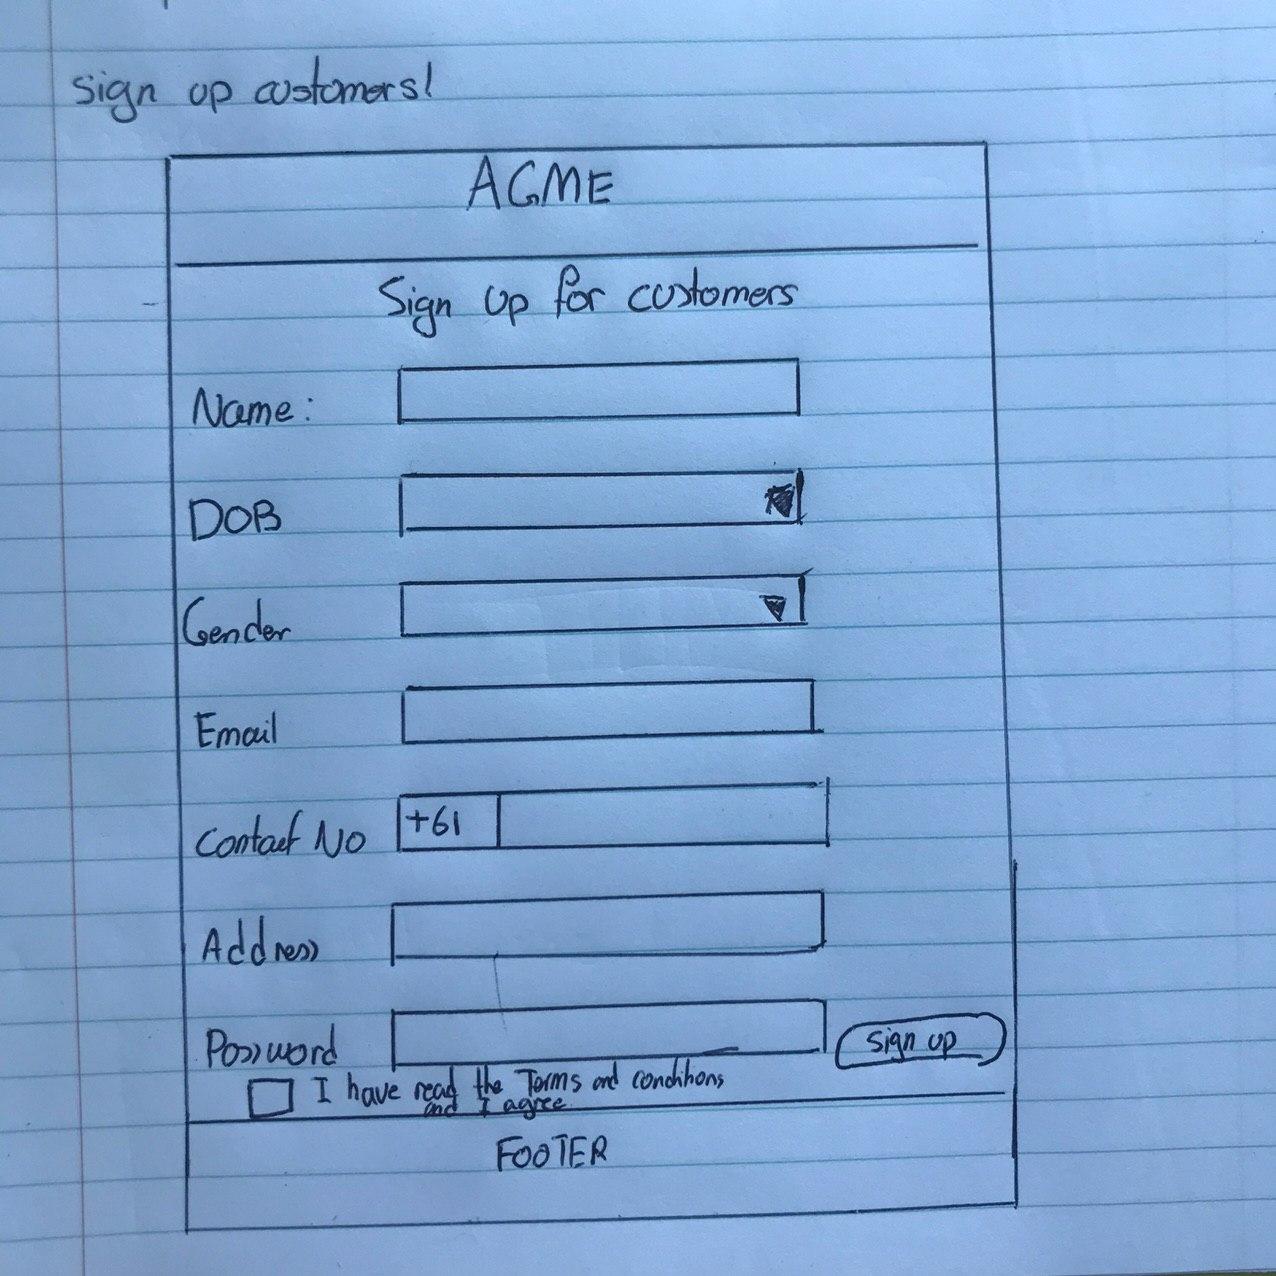 Sign up customers!
ACME
Sign up for customers
Name:
DOB
Gender
Email
Contact No +61
Address
Password
Sign up
I have read the Terms and conditions
and I agree
FOOTER